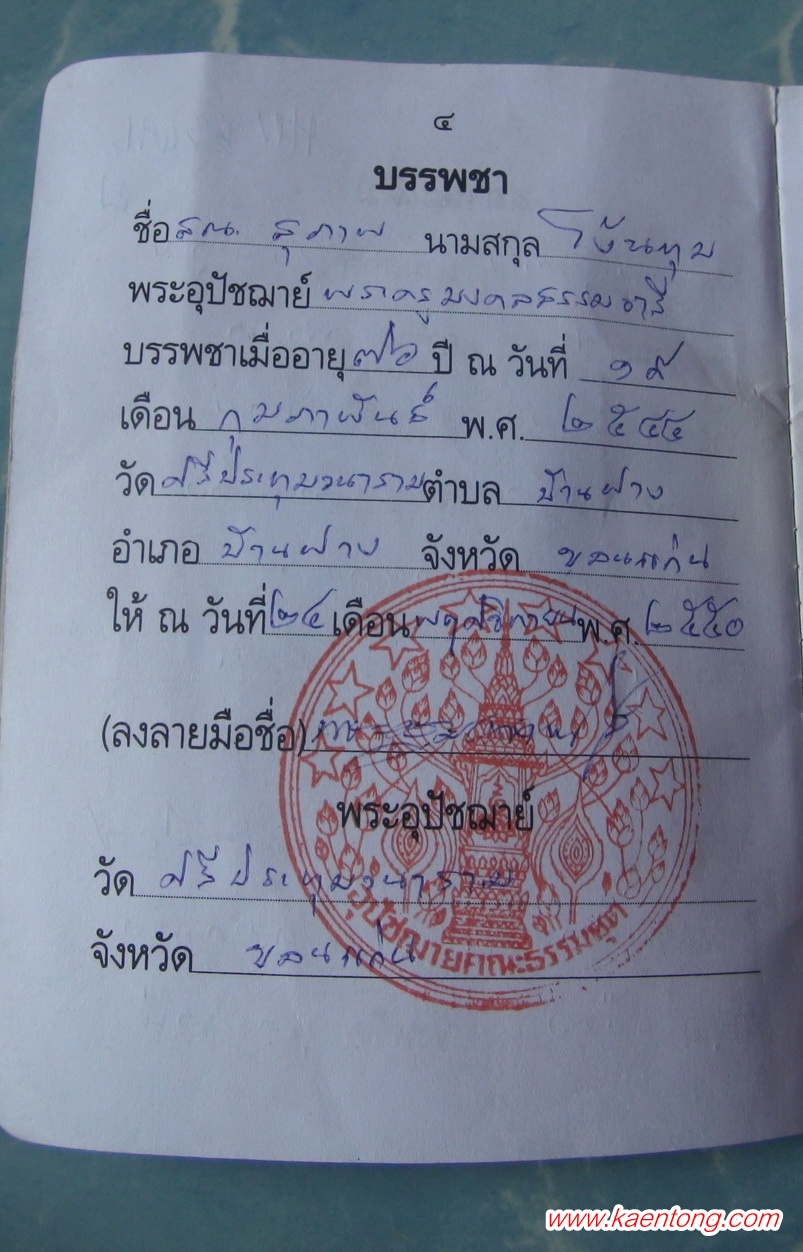 ๔
บรรพชา
ชื่อ สณ. สุภาพ นามสกุล โง้นทุม
พระอุปัชฌาย์ พระครูมงคลธรรมจารี
บรรพชาเมื่ออายุ ๗๖ ปี ณ วันที่ ๑๙
เดือน กุมภาพันธ์ พ.ศ. ๒๕๔๔
วัด ศรีประทุมวนาราม ตำบล บ้านฝาง
อำเภอ บ้านฝาง จังหวัด ขอนแก่น
ให้ ณ วันที่ ๒๔ เดือน พฤศจิกายน พ.ศ. ๒๕๕๐
(ลงลายมือชื่อ)
พระอุปัชฌาย์
วัด ศรีประทุมวนาราม
จังหวัด ขอนแก่น
อุปัชฌายคณะธรรมยุต
www.kaentong.com